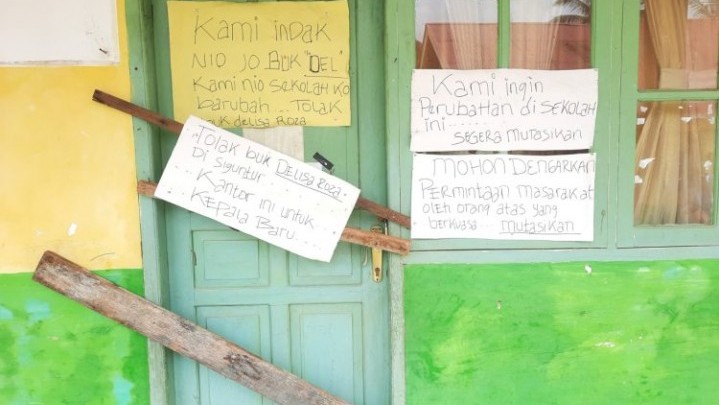 Kami indak
NIO JO BUK "DEL"
Kami nio sekolah ko
barubah... Tolak
buk delisa Roza
Tolak buk DELISA ROZA
Di Siguntur
Kantor ini untuk
KEPALA Baru...
Kami ingin
Perubahan di SEKOLAH
ini.....
SEGERA MUTASIKAN
MOHON DENGARKAN
PERMINTAAN MASARAKAT
oleh orang atas yang
berkuasa... MUTASIKAN